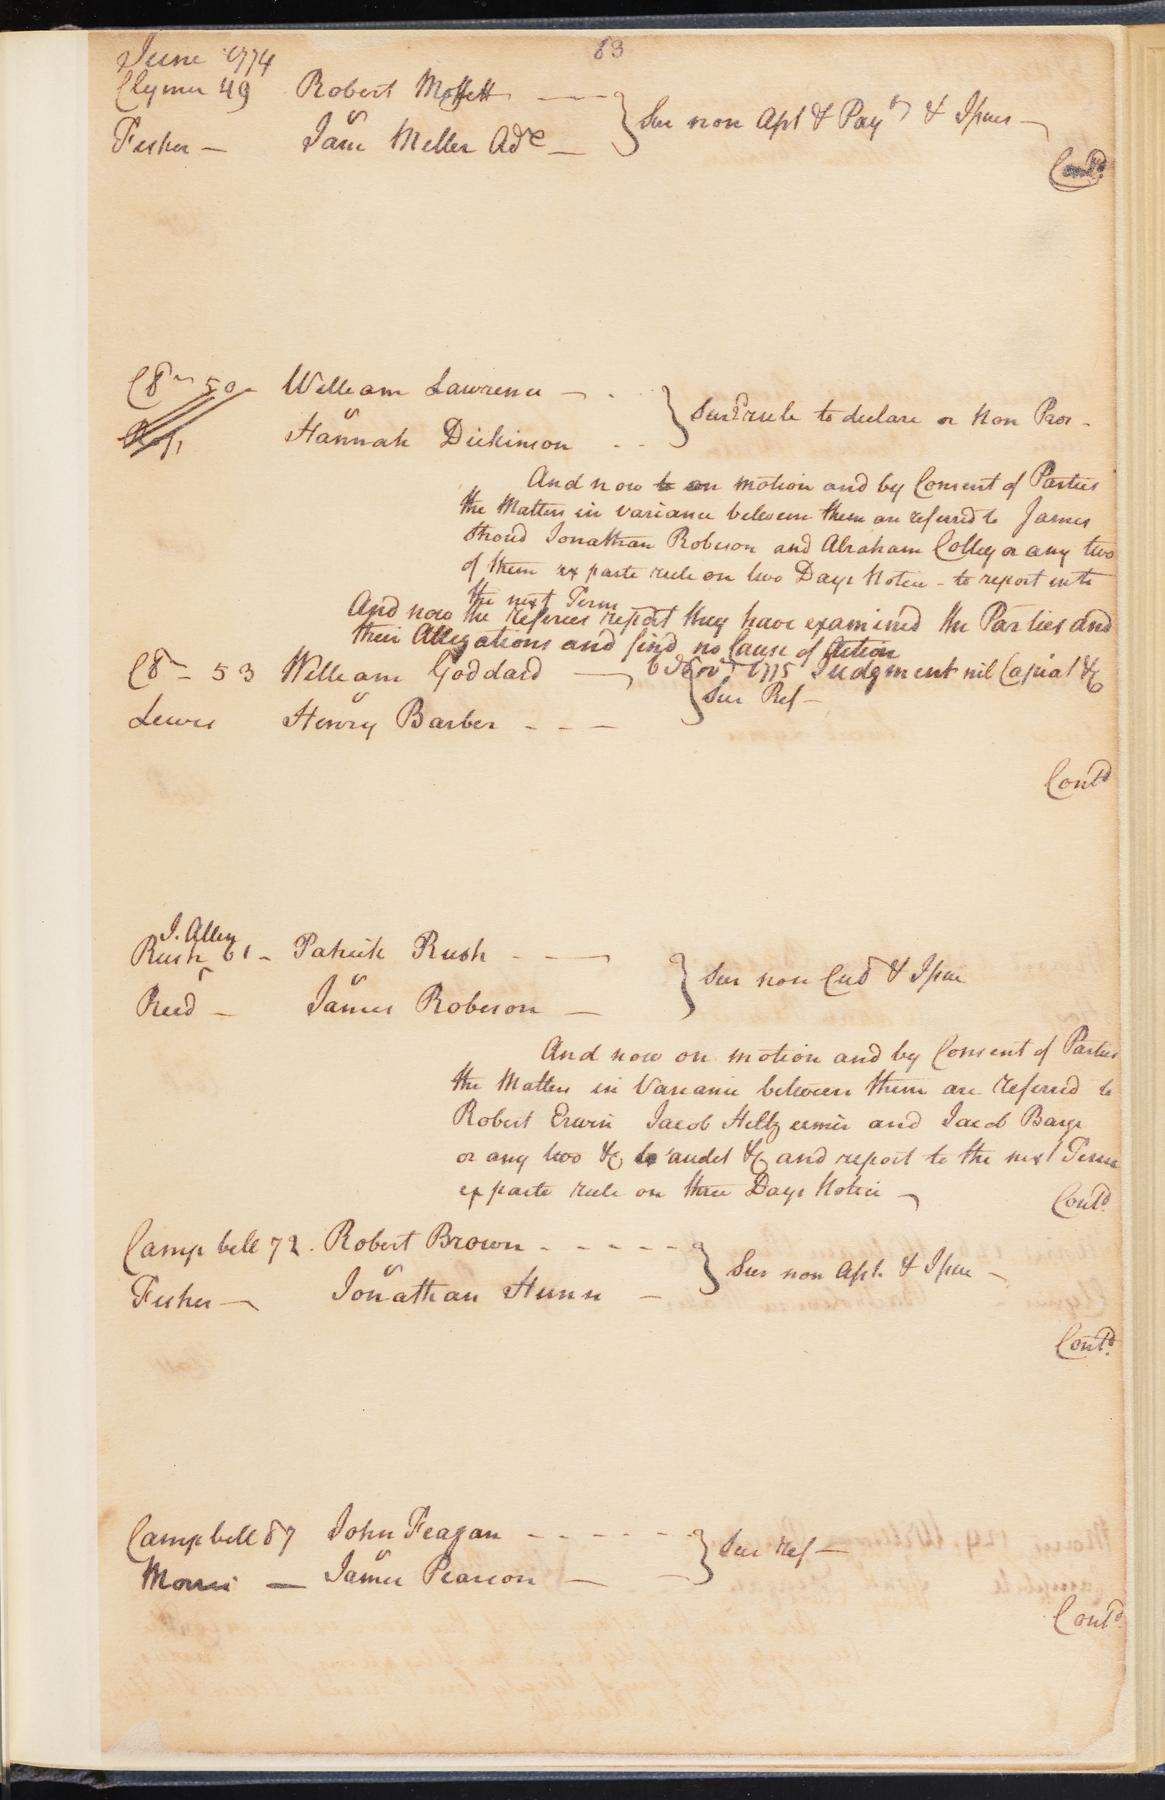 83
June 1774
Clymer 49 Robert Moffett
Sur non Aſst & Paymt & Iſsues
Fisher — Jane Miller Adx
Contd
CBm 50 William Lawrence
Sur rule to declare or Non Pros
v
Hannah Dickinson
And now on motion and by Consent of Parties
the Matters in variance between them are referred to James
Stroud Jonathan Roberson and Abraham Colley or any two
of them ex parte rule on two Days Notice – to report into
the next Term
And now the Referees report they have examined the Parties and
their Allegations and find no Cause of Action
6 Novr 1775 Judgment nil Capiat &c
53 William Goddard
v
Sur Ref —
Lewis Henry Barber
Contd
J. Allen
Rush 61 – Patrick Rush
v
Sur non Cul & Iſsue
Reed — James Roberson
And now on motion and by Consent of Parties
the Matters in Variance between them are referred to
Robert Erwin Jacob Hiltzheimer and Jacob Barge
or any two &c to audit &c and report to the next Term
ex parte rule on three Days Notice
Contd
Campbell 72. Robert Brown
v
Sur non Aſst. & Iſsue
Fisher — Jonathan Hunn
Contd.
Campbell 87 John Feagan
v
Sur ref —
Morris — James Pearson
Contd